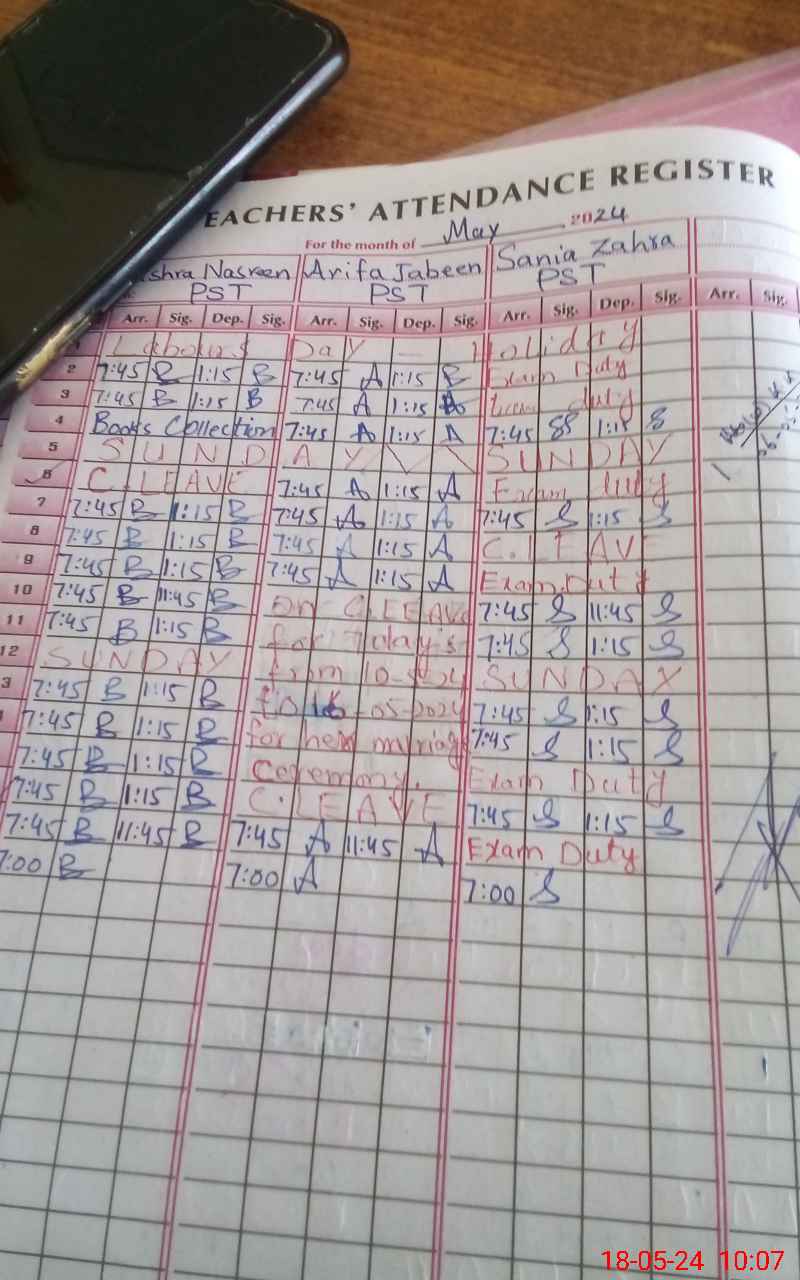 EACHERS' ATTENDANCE REGISTER
For the month of May 2024
shra Nasreen Arifa Jabeen Sania Zahra
PST PST PST
Arr. Sig. Dep. Sig. Arr. Sig. Dep. Sig. Arr. Sig. Dep. Sig. Arr. Sig.
Labours Day Holiday
2 7:45 B 1:15 B 7:45 A 1:15 B Exam Duty
3 7:45 B 1:15 B 7:45 A 1:15 duty
4 Books Collection 7:45 A 1:15 A 7:45 SS 1:15 S
5 SUNDAY SUNDAY
6 C.LEAVE 7:45 A 1:15 A Exam duty
7 7:45 B 1:15 B 7:45 A 1:15 A 7:45 S 1:15 S
8 7:45 B 1:15 B 7:45 A 1:15 A C.LEAVE
9 7:45 B 1:15 B 7:45 A 1:15 A Exam Duty
10 7:45 B 11:45 B On C.LEAVE 7:45 S 11:45 S
11 7:45 B 1:15 B for 7 day's 7:45 S 1:15 S
12 SUNDAY from SUNDAY
3 7:45 B 1:15 B to 16-05-2024 7:45 S 1:15 S
7:45 B 1:15 B for her marriage 7:45 S 1:15 S
7:45 B 1:15 B Ceremony. Exam Duty
7:45 B 1:15 B C.LEAVE 7:45 S 1:15 S
7:45 B 11:45 B 7:45 A 11:45 A Exam Duty
7:00 B 7:00 A 7:00 S
18-05-24 10:07